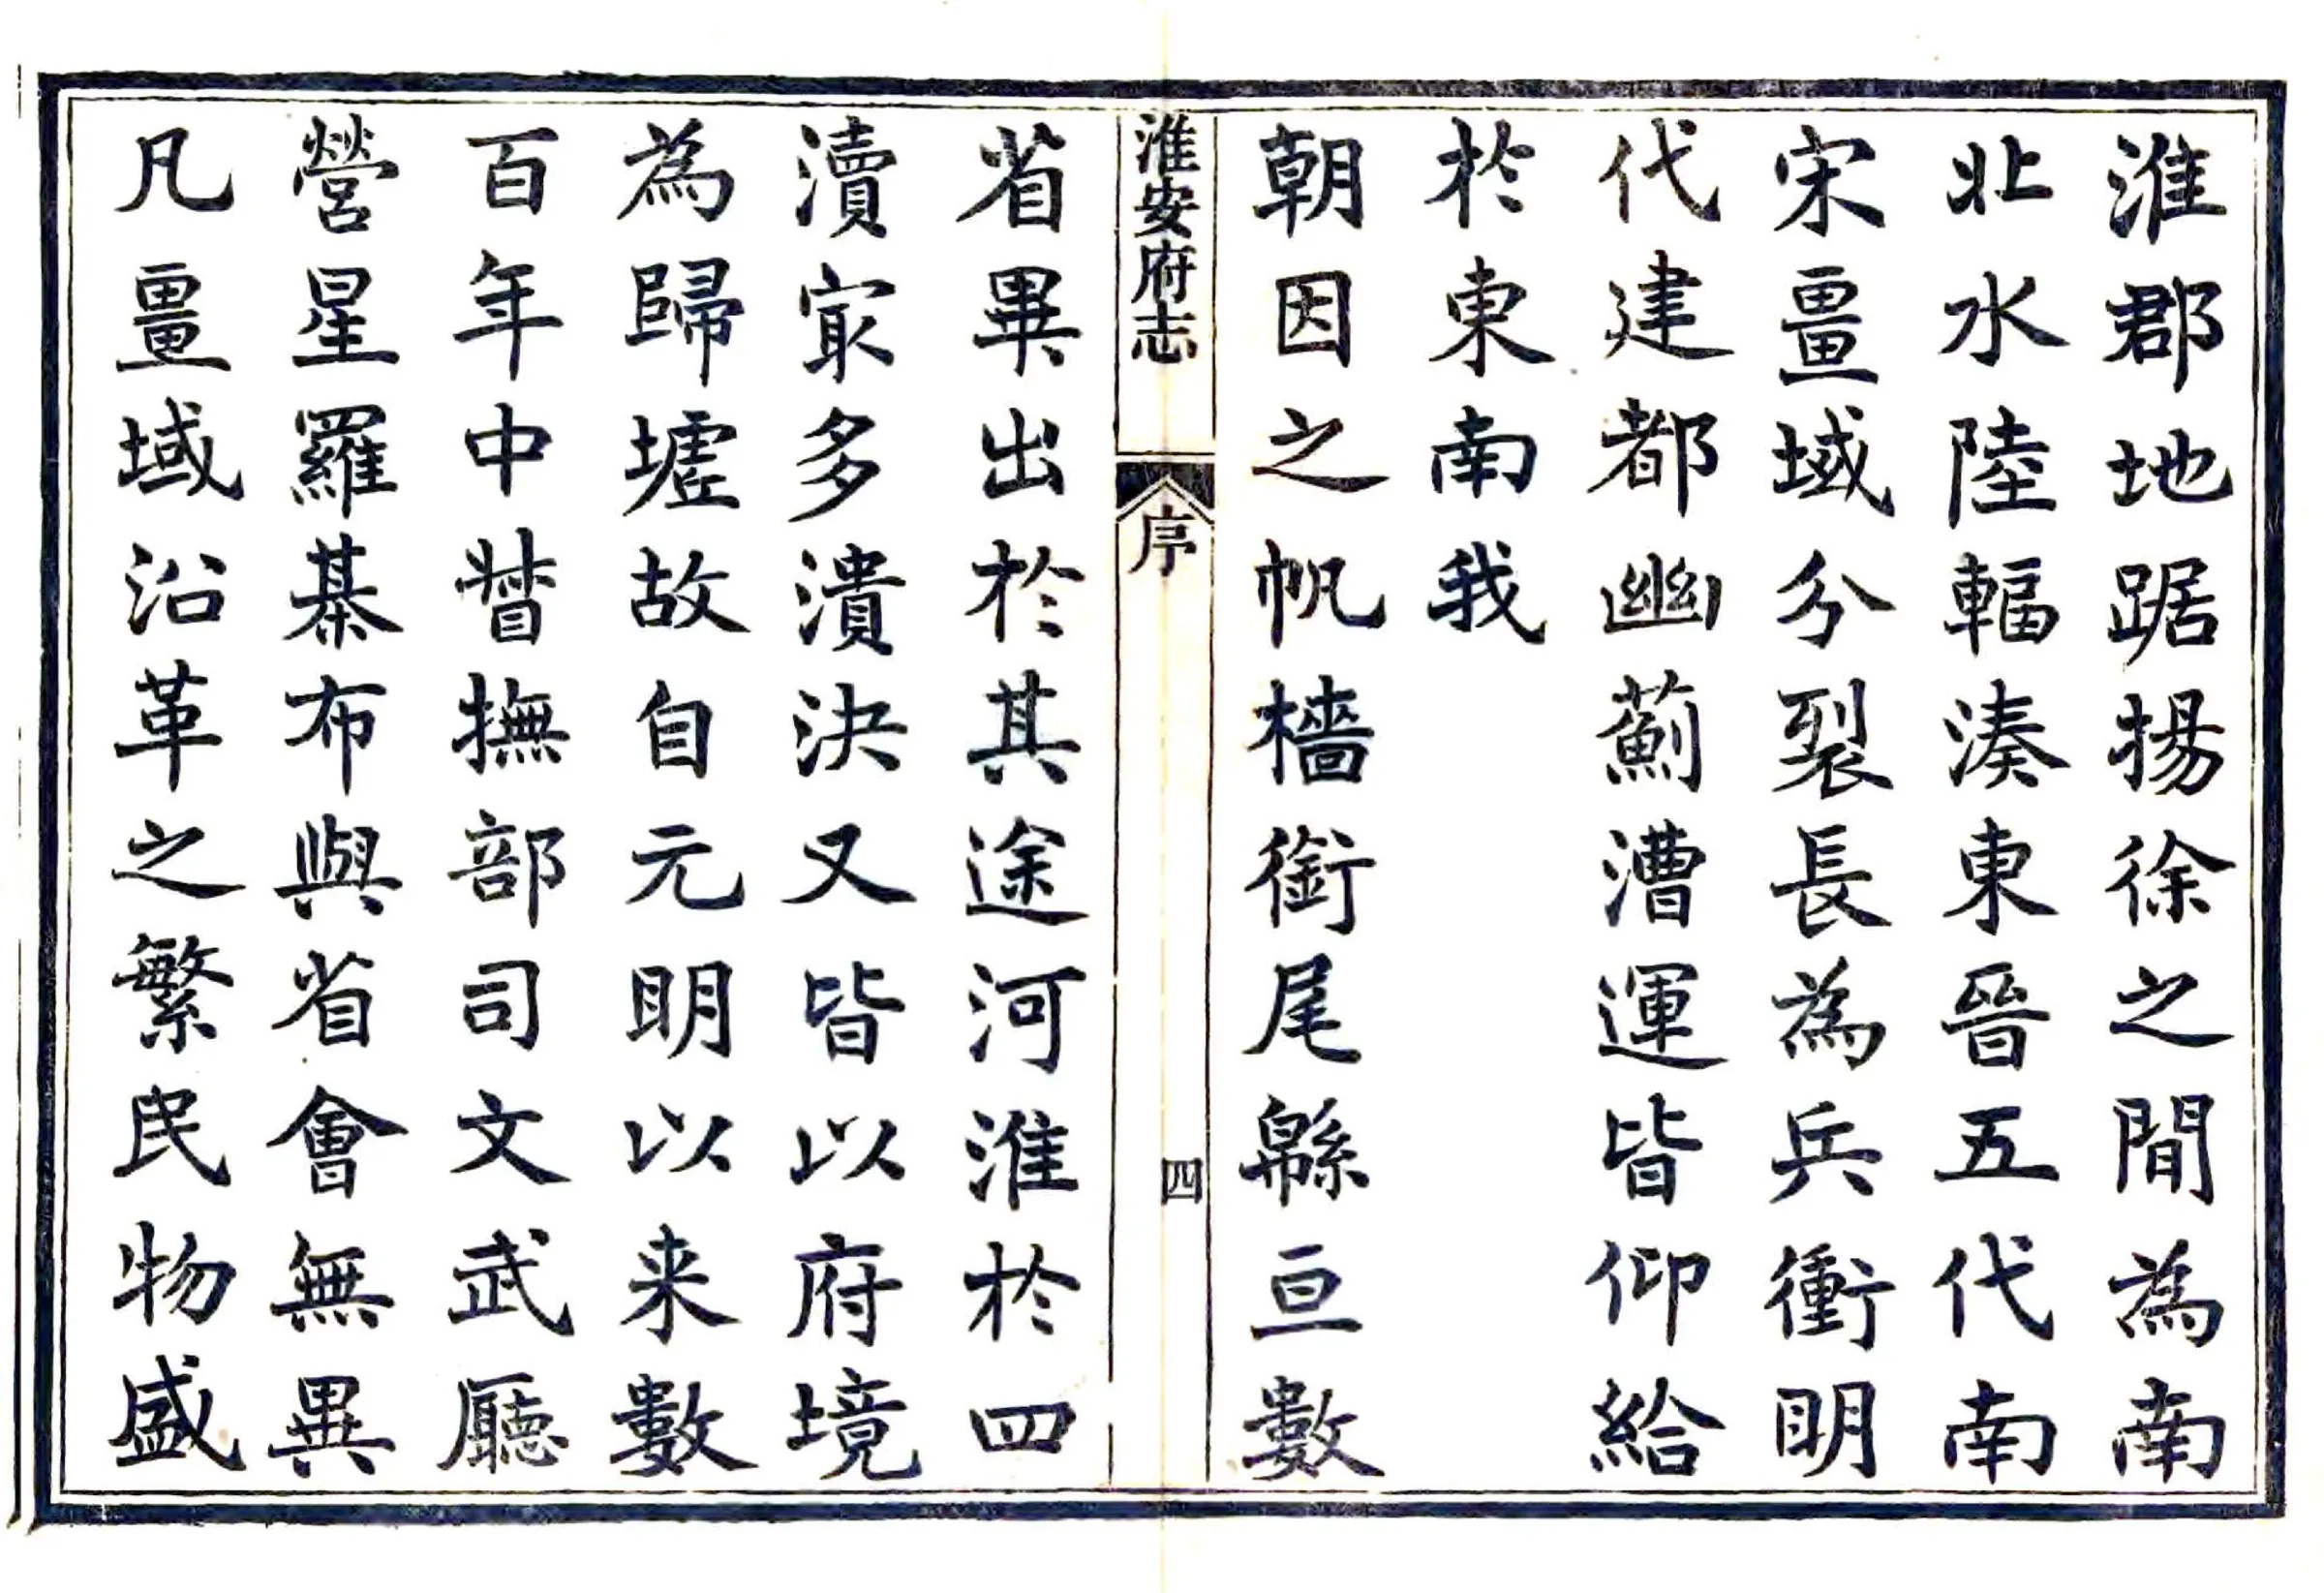 淮郡地踞揚徐之間為南
北水陸輻湊東晉五代南
宋畺域分裂長為兵衝明
代建都幽薊漕運皆仰給
於東南我
朝因之帆檣銜尾緜亘數
淮安府志
序
四
省畢出於其途河淮於四
瀆冣多潰決又皆以府境
為歸墟故自元明以来數
百年中督撫部司文武廳
營星羅棊布與省會無異
凡畺域沿革之繁民物盛